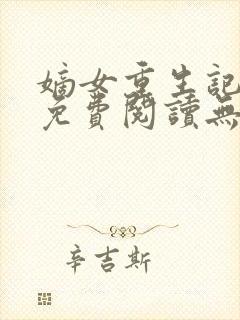 嫡女重生記
免費閱讀無
辛吉斯